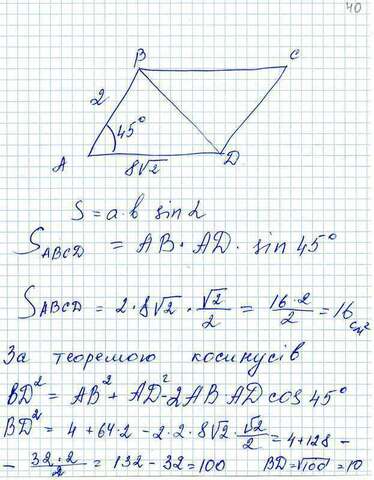 40
B
C
2
45°
A
8√2
D
S = a·b sin α
S_ABCD = AB · AD · sin 45°
S_ABCD = 2 · 8√2 · √2/2 = 16·2/2 = 16 см²
За теоремою косинусів
BD² = AB² + AD² - 2AB AD cos 45°
BD² = 4 + 64·2 - 2·2·8√2 · √2/2 = 4 + 128 -
- 32·2/2 = 132 - 32 = 100 BD = √100 = 10